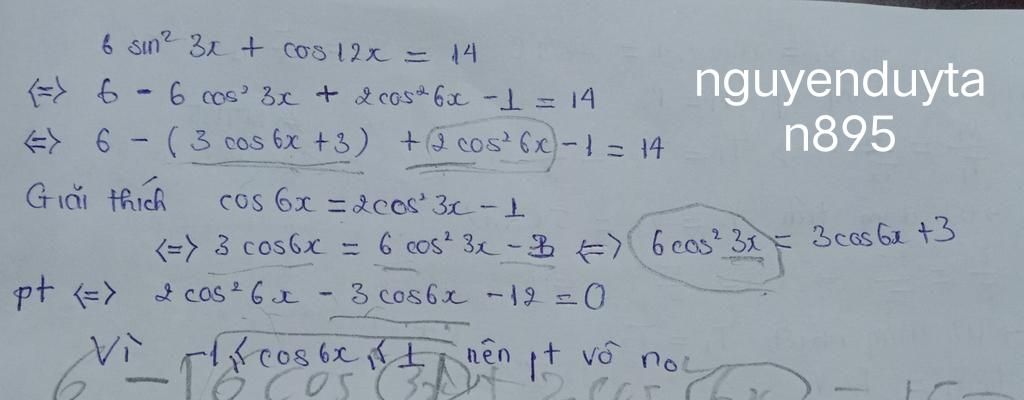 6 sin² 3x + cos 12x = 14
<=> 6 - 6 cos² 3x + 2cos² 6x - 1 = 14
<=> 6 - ( 3 cos 6x + 3 ) + 2 cos² 6x - 1 = 14
Giải thích cos 6x = 2cos² 3x - 1
<=> 3 cos6x = 6 cos² 3x - 3 <=> 6 cos² 3x = 3cos 6x + 3
pt <=> 2 cos² 6x - 3 cos6x - 12 = 0
Vì -1 ≤ cos 6x ≤ 1 nên pt vô no
nguyenduyta
n895